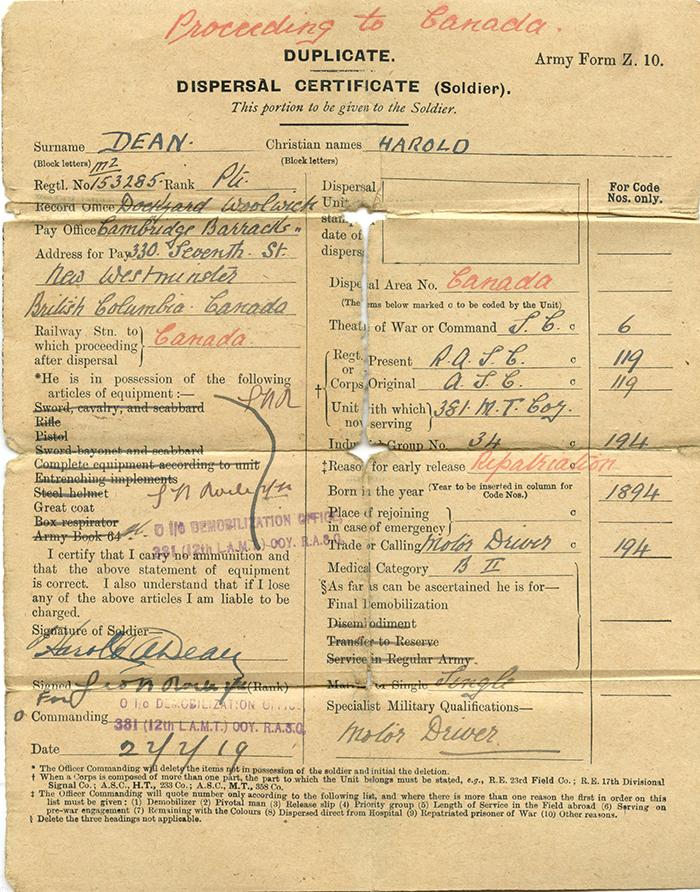 Proceeding to Canada.
DUPLICATE.
Army Form Z. 10.
DISPERSAL CERTIFICATE (Soldier).
This portion to be given to the Soldier.
Surname DEAN. Christian names HAROLD
(Block letters) (Block letters)
M2
Regtl. No. 153285 Rank Pte.
Record Office Dockyard Woolwich
Pay Office Cambridge Barracks "
Address for Pay 330. Seventh. St.
New Westminster
British Columbia. Canada
Railway Stn. to which proceeding after dispersal } Canada.
*He is in possession of the following
articles of equipment :—
Sword, cavalry, and scabbard
Rifle
Pistol
Sword-bayonet and scabbard
Complete equipment according to unit
Entrenching implements
Steel helmet
Great coat
Box respirator
Army Book 64
O i/c DEMOBILIZATION OFFICE,
381 (12th L.A.M.T.) COY. R.A.S.C.
I certify that I carry no ammunition and
that the above statement of equipment
is correct. I also understand that if I lose
any of the above articles I am liable to be
charged.
Signature of Soldier
Harold Dean
Signed (Rank)
For
O i/c DEMOBILIZATION OFFICE,
Commanding
381 (12th L.A.M.T.) COY. R.A.S.C.
Date 22/2/19
For Code
Nos. only.
Dispersal
Unit
stamp
date of
dispersal
Dispersal Area No. Canada
(The items below marked c to be coded by the Unit)
Theatre of War or Command S. C. c 6
Regt. or Corps { Present R. A. S. C. c 119
Original A. S. C. c 119
Unit with which now serving } 381 M. T. Coy.
Industrial Group No. 34 c 194
‡Reason for early release Repatriation c
Born in the year (Year to be inserted in column for Code Nos.) 1894
Place of rejoining in case of emergency } c
Trade or Calling Motor Driver c 194
Medical Category B II
§As far as can be ascertained he is for—
Final Demobilization
Disembodiment
Transfer to Reserve
Service in Regular Army
Married or Single Single
Specialist Military Qualifications—
Motor Driver
* The Officer Commanding will delete the items not in possession of the soldier and initial the deletion.
† When a Corps is composed of more than one part, the part to which the Unit belongs must be stated, e.g., R.E. 23rd Field Co.; R.E. 17th Divisional
Signal Co.; A.S.C., H.T., 233 Co.; A.S.C., M.T., 358 Co.
‡ The Officer Commanding will quote number only according to the following list, and where there is more than one reason the first in order on this
list must be given; (1) Demobilizer (2) Pivotal man (3) Release slip (4) Priority group (5) Length of Service in the Field abroad (6) Serving on
pre-war engagement (7) Remaining with the Colours (8) Dispersed direct from Hospital (9) Repatriated prisoner of War (10) Other reasons.
§ Delete the three headings not applicable.